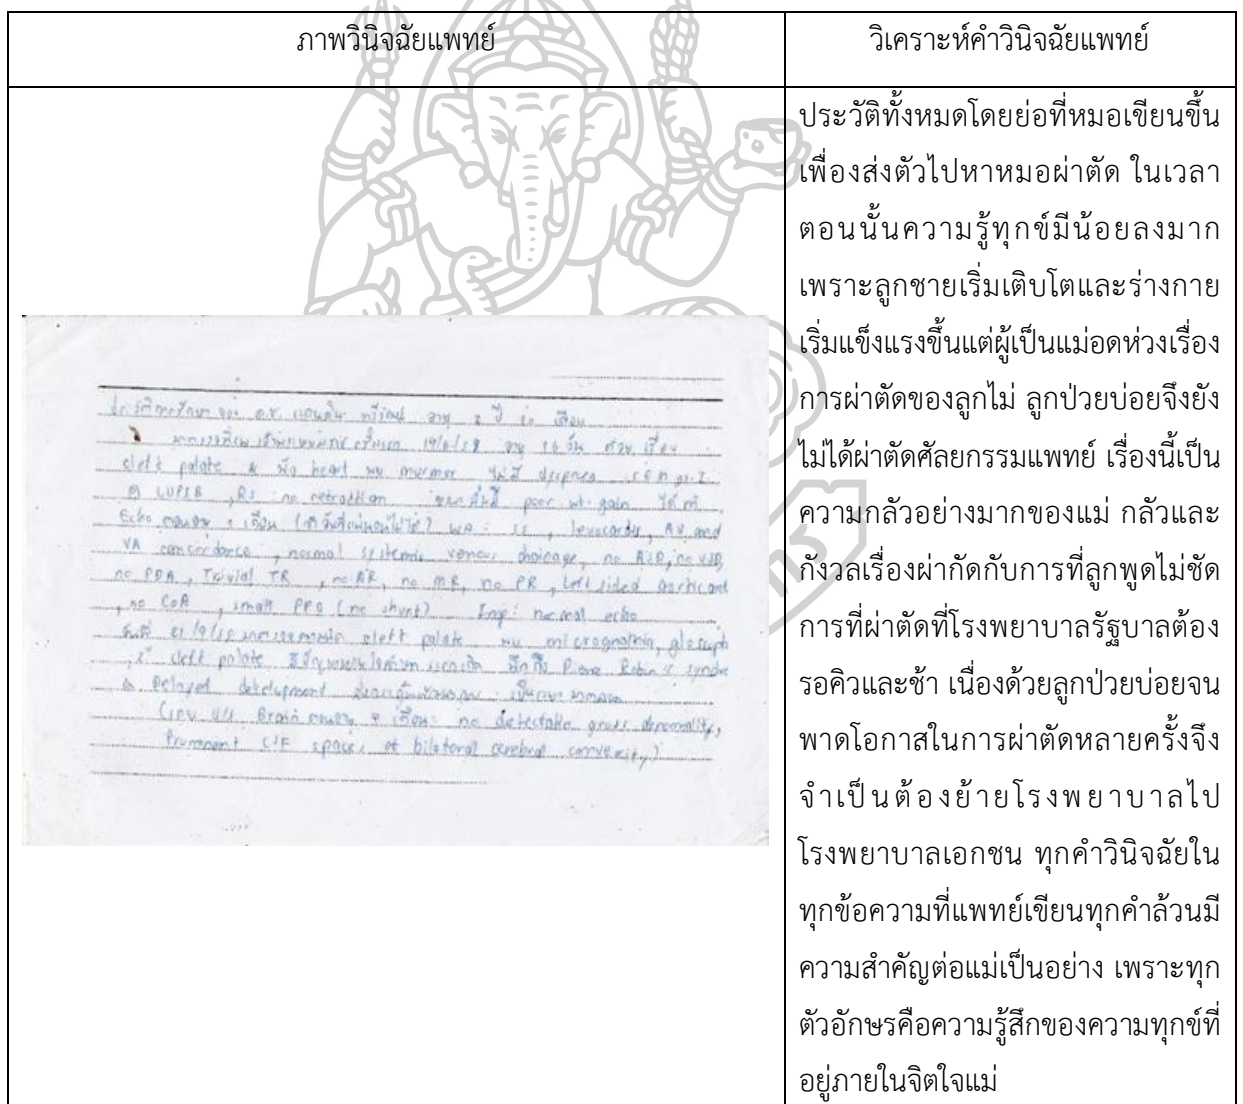 ภาพวินิจฉัยแพทย์
วิเคราะห์คำวินิจฉัยแพทย์
ประวัติการรักษาของ ด.ช. อายุ 2 ปี 10 เดือน
19/6/58 อายุ 16 วัน ด้วยเรื่อง
cleft palate & ฟัง heart พบ murmur ไม่มี dyspnea
@ LUPSB , RS : no retraction poor wt. gain ได้ทำ
Echo ตอนอายุ 1 เดือน , levocardia, AV and
VA concordance , normal systemic venous drainage, no ASD, no VSD,
no PDA , Trivial TR , no AR, no MR, no PR , Left sided aortic arch
, no CoA , small PFO (no shunt) Imp: normal echo
cleft palate พบ micrognathia,
cleft palate Robin's
Delayed development
U/S Brain เดือน: no detectable gross abnormality,
Prominent CSF space, at bilateral cerebral convexity)
ประวัติทั้งหมดโดยย่อที่หมอเขียนขึ้น
เพื่องส่งตัวไปหาหมอผ่าตัด ในเวลา
ตอนนั้นความรู้ทุกข์มีน้อยลงมาก
เพราะลูกชายเริ่มเติบโตและร่างกาย
เริ่มแข็งแรงขึ้นแต่ผู้เป็นแม่อดห่วงเรื่อง
การผ่าตัดของลูกไม่ ลูกป่วยบ่อยจึงยัง
ไม่ได้ผ่าตัดศัลยกรรมแพทย์ เรื่องนี้เป็น
ความกลัวอย่างมากของแม่ กลัวและ
กังวลเรื่องผ่ากัดกับการที่ลูกพูดไม่ชัด
การที่ผ่าตัดที่โรงพยาบาลรัฐบาลต้อง
รอคิวและช้า เนื่องด้วยลูกป่วยบ่อยจน
พาดโอกาสในการผ่าตัดหลายครั้งจึง
จำเป็นต้องย้ายโรงพยาบาลไป
โรงพยาบาลเอกชน ทุกคำวินิจฉัยใน
ทุกข้อความที่แพทย์เขียนทุกคำล้วนมี
ความสำคัญต่อแม่เป็นอย่าง เพราะทุก
ตัวอักษรคือความรู้สึกของความทุกข์ที่
อยู่ภายในจิตใจแม่